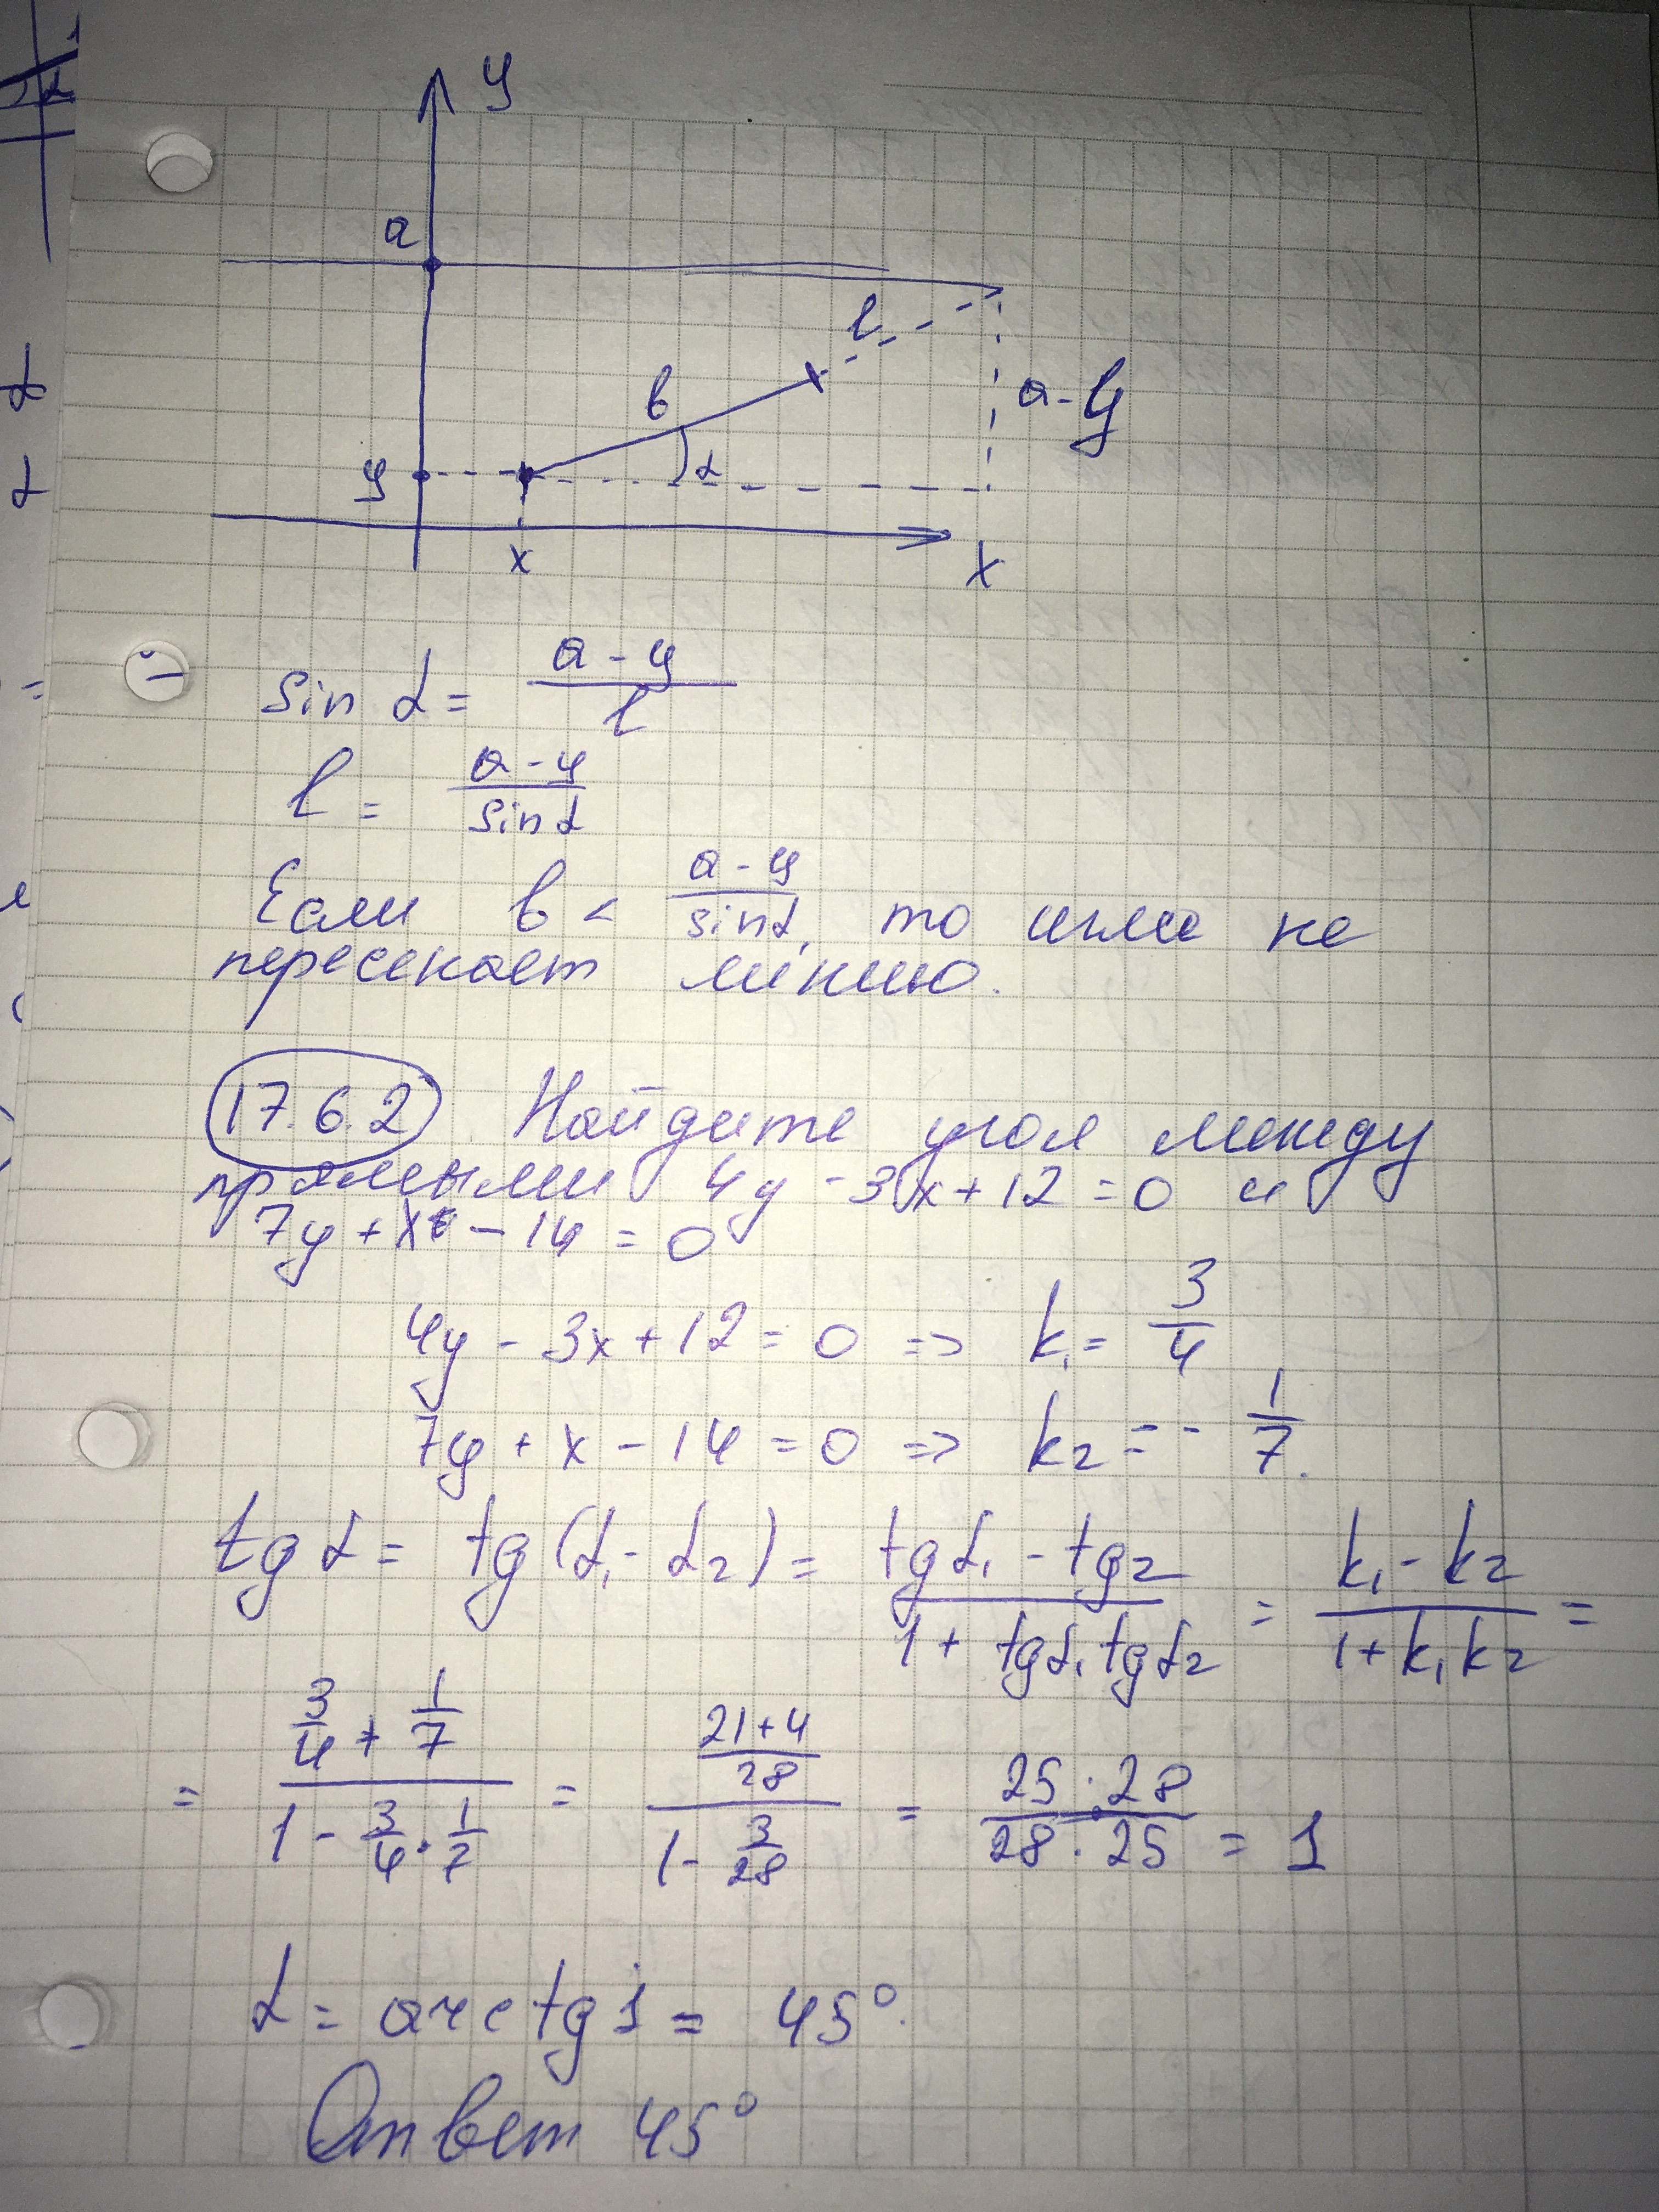 y
a
l
b
a-y
α
y
x
x
sin α = (a-y)/l
l = (a-y)/sin α
Если b < (a-y)/sin α, то игла не
пересекает линию.
17.6.2 Найдите угол между
прямыми 4y - 3x + 12 = 0 и
7y + x - 14 = 0
4y - 3x + 12 = 0 => k₁ = 3/4
7y + x - 14 = 0 => k₂ = - 1/7.
tg α = tg(α₁ - α₂) = (tg α₁ - tg₂)/(1 + tg α₁ tg α₂) = (k₁ - k₂)/(1 + k₁k₂) =
= (3/4 + 1/7)/(1 - 3/4 · 1/7) = ((21+4)/28)/(1 - 3/28) = (25 · 28)/(28 · 25) = 1
α = arctg 1 = 45°.
Ответ 45°